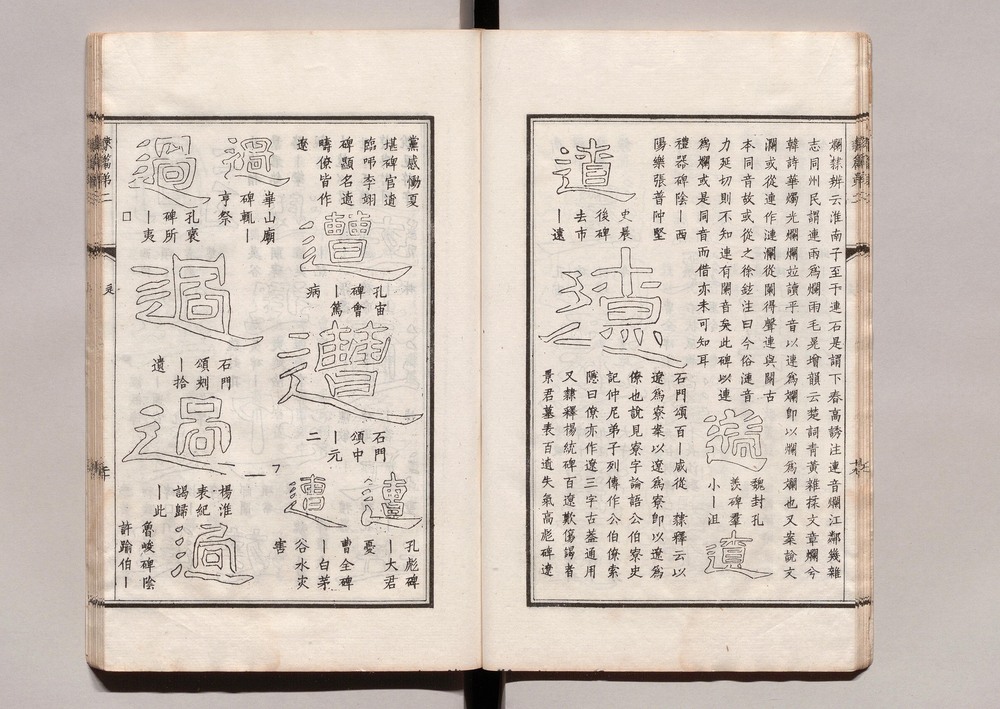 爛隸辨云淮南子至于連石是謂下舂高誘注連音爛江鄰幾雜
志同州民謂連雨爲爛雨毛晃增韻云楚詞青黃雜揉文章爛兮
韓詩華燭光爛爛竝讀平音以連爲爛卽以爛爲爛也又案說文
瀾或從連作漣瀾從闌得聲連與闌古
本同音故或從之徐鉉注曰今俗漣音
力延切則不知連有闌音矣此碑以連
爲爛或是同音而借亦未可知耳
遄
魏封孔
羨碑羣
小|沮
遼
禮器碑陰|西
陽樂張普仲堅
遼
史晨
後碑
去市
|遠
遼
石門頌百|咸從 隸釋云以
遼爲寮案以遼爲寮卽以遼爲
僚也說見寮字論語公伯寮史
記仲尼弟子列傳作公伯僚索
隱曰僚亦作遼三字古蓋通用
又隸釋楊統碑百遼歎傷謁者
景君墓表百遺失氣高彪碑遼
黨感慟夏
堪碑官遺
臨咈李翊
碑顯名遺
疇僚皆作
遼
遭
孔宙
碑會
|篤
病
遭
石門
頌中
|元
二
遭
孔彪碑
|大君
憂
遭
曹全碑
|白茅
谷水灾
害
過
華山廟
碑輒|
亨祭
過
孔褒
碑所
|夷
□
過
石門
頌刻
|拾
遺
過
楊淮
表紀
謁歸
|此
過
魯峻碑陰
許踰伯|